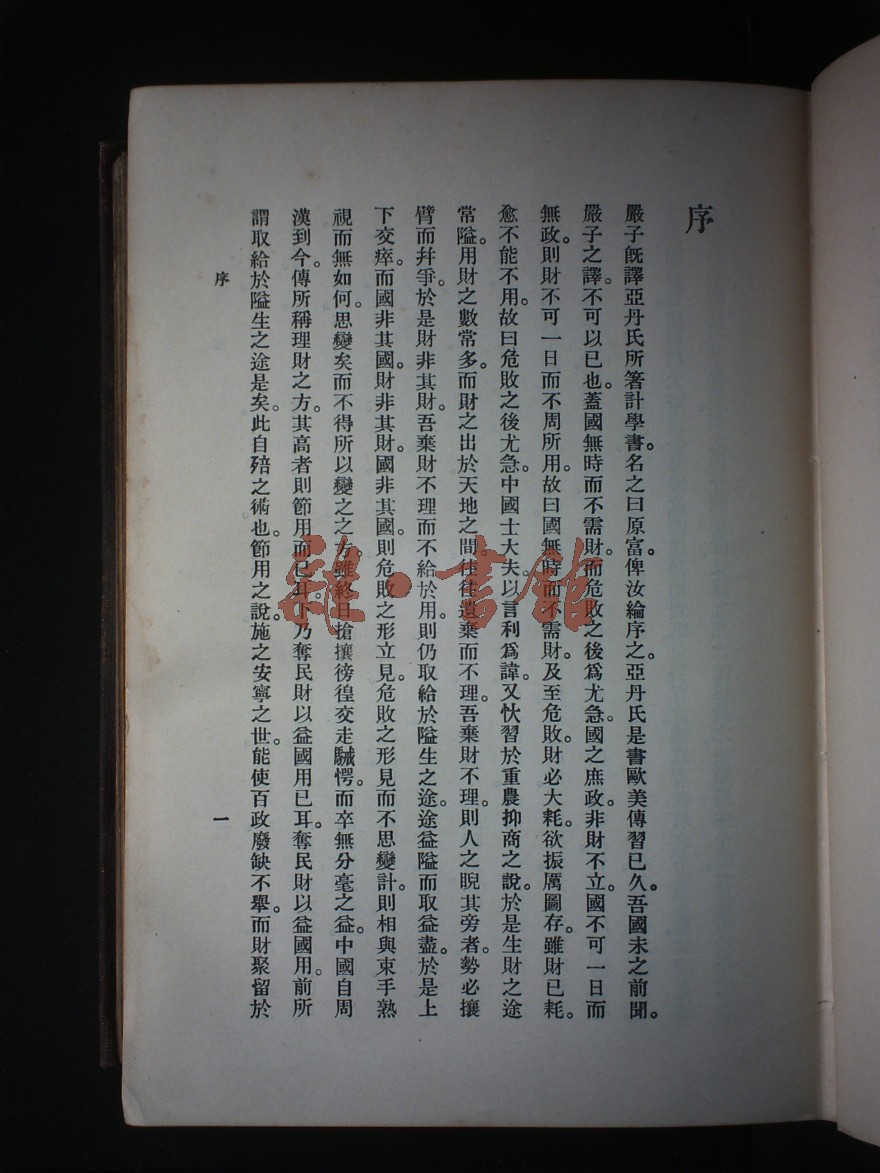 序
嚴子旣譯亞丹氏所箸計學書。名之曰原富。俾汝綸序之。亞丹氏是書歐美傳習已久。吾國未之前聞。
嚴子之譯。不可以已也。蓋國無時而不需財。而危敗之後爲尤急。國之庶政。非財不立。國不可一日而
無政。則財不可一日而不周所用。故曰國無時而不需財。及至危敗。財必大耗。欲振厲圖存。雖財已耗。
愈不能不用。故曰危敗之後尤急。中國士大夫。以言利爲諱。又忕習於重農抑商之說。於是生財之途
常隘。用財之數常多。而財之出於天地之間。往往遺棄而不理。吾棄財不理。則人之睨其旁者。勢必攘
臂而幷爭。於是財非其財。吾棄財不理而不給於用。則仍取給於隘生之途。途益隘而取益盡。於是上
下交瘁。而國非其國。財非其財。國非其國。則危敗之形立見。危敗之形見而不思變計。則相與束手熟
視而無如何。思變矣而不得所以變之之方。雖終日搶攘徬徨交走駴愕。而卒無分毫之益。中國自周
漢到今。傳所稱理財之方。其高者則節用而已耳。下乃奪民財以益國用已耳。奪民財以益國用。前所
謂取給於隘生之途是矣。此自殪之術也。節用之說。施之安寧之世。能使百政廢缺不舉。而財聚留於
序
一
雜·書館